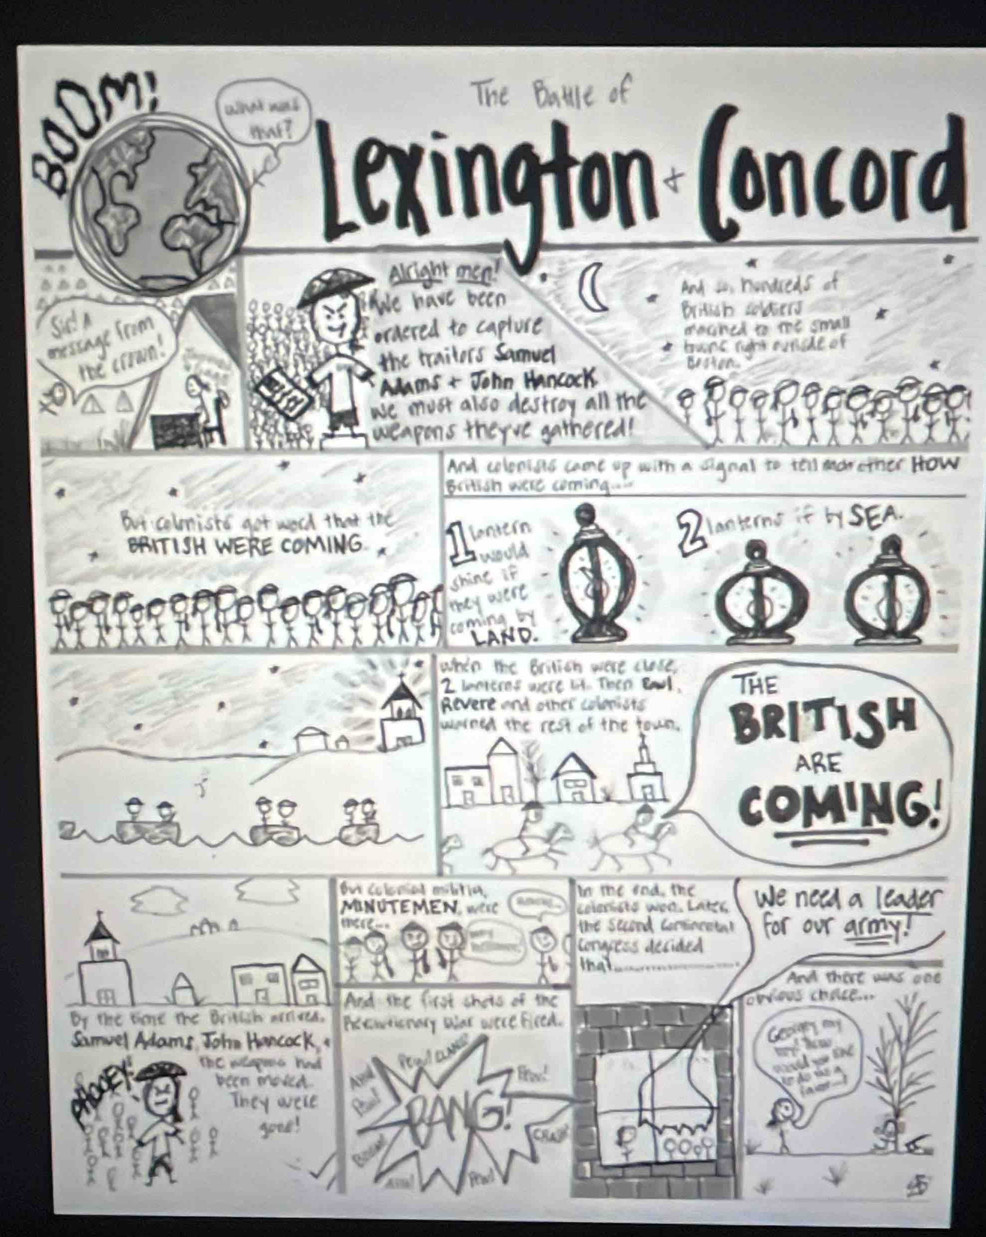 BOOM!
What was
that?
The Battle of
Lexington + Concord
Sir! A
message from
the crown!
Alright men!
We have been
ordered to capture
the traitors Samuel
Adams + John Hancock
We must also destroy all the
weapons they've gathered!
And so, hundreds of
British soldiers
marched to the small
towns right outside of
Boston.
But colonists got word that the
BRITISH WERE COMING.
And colonists came up with a signal to tell HOW
British were coming....
1 lantern
would
shine if
they were
coming by
LAND.
2 lanterns if by SEA.
When the British were close,
2 lanterns were lit. Then Paul
Revere and other colonists
warned the rest of the town.
THE
BRITISH
ARE
COMING!
By the time the British arrived,
Samuel Adams, John Hancock, +
the weapons had
been moved.
They were
gone!
PHOOEY!
But colonial militia,
MINUTEMEN, were
there...
And the first shots of the
Revolutionary War were fired.
Pew! CLANG!
Pew!
Pow!
BANG!
Pew!
In the end, the
colonists won. Later,
the Second Continental
Congress decided
that...............
We need a leader
for our army!
And there was one
obvious choice...
George, my
would you like
to do me a
favor...?